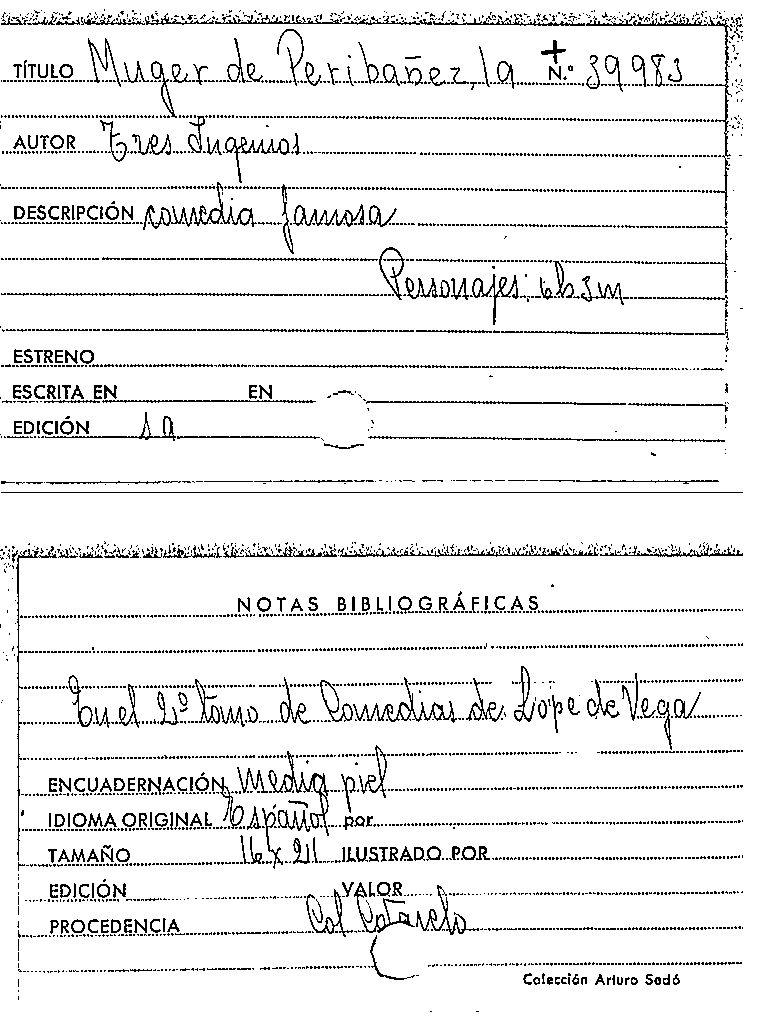 TÍTULO Muger de Peribañez, la + N.º 39983
AUTOR Tres Ingenios
DESCRIPCIÓN comedia famosa
Personajes: 6h 3m
ESTRENO
ESCRITA EN EN
EDICIÓN s a
NOTAS BIBLIOGRÁFICAS
En el 2º tomo de Comedias de Lope de Vega
ENCUADERNACIÓN media piel
IDIOMA ORIGINAL Español por
TAMAÑO 16 x 21 ILUSTRADO POR
EDICIÓN VALOR
PROCEDENCIA Col Cotarelo
Colección Arturo Sedó